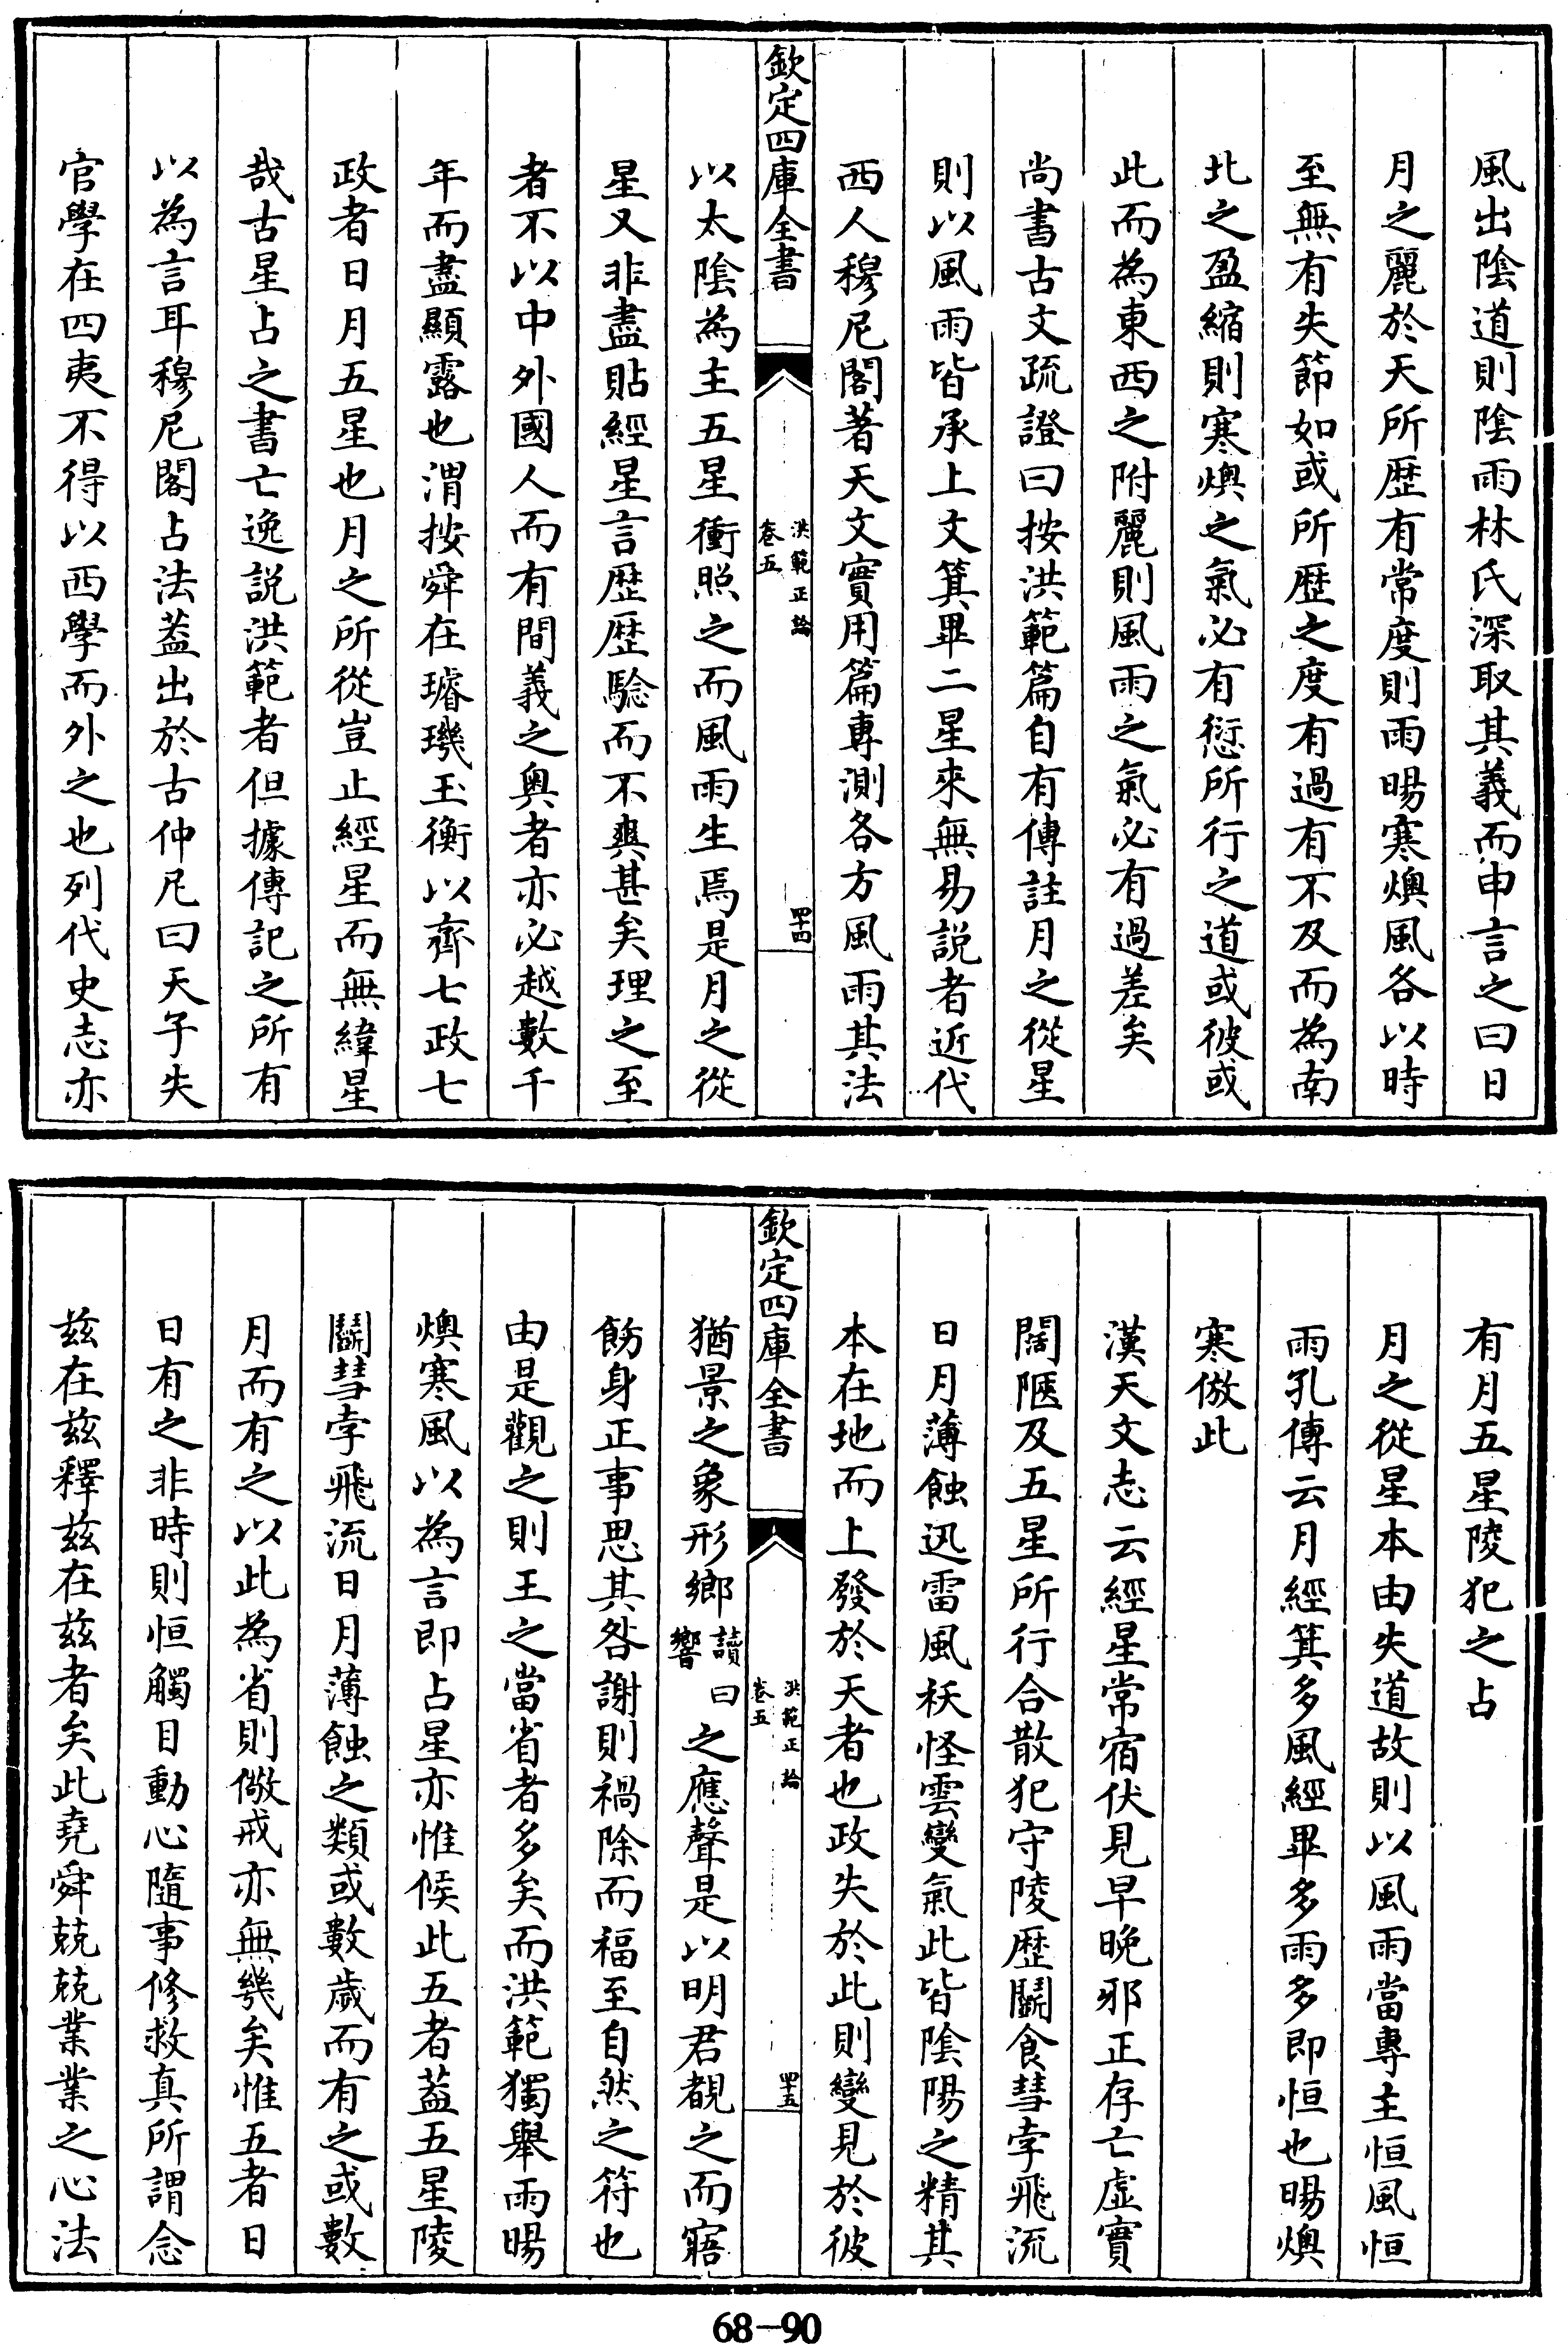 風出陰道則陰雨林氏深取其義而申言之曰日
月之麗於天所歴有常度則雨暘寒燠風各以時
至無有失節如或所歴之度有過有不及而為南
北之盈縮則寒燠之氣必有愆所行之道或彼或
此而為東西之附麗則風雨之氣必有過差矣
尚書古文疏證曰按洪範篇自有傳註月之從星
則以風雨皆承上文箕畢二星來無易說者近代
西人穆尼閣著天文實用篇專測各方風雨其法
欽定四庫全書
洪範正論
卷五
四十四
以太陰為主五星衝照之而風雨生焉是月之從
星又非盡貼經星言歴歴驗而不爽甚矣理之至
者不以中外國人而有間義之奥者亦必越數千
年而盡顯露也渭按舜在璿璣玉衡以齊七政七
政者日月五星也月之所從豈止經星而無緯星
哉古星占之書亡逸説洪範者但據傳記之所有
以為言耳穆尼閣占法葢出於古仲尼曰天子失
官學在四夷不得以西學而外之也列代史志亦
有月五星陵犯之占
月之從星本由失道故則以風雨當專主恒風恒
雨孔傳云月經箕多風經畢多雨多即恒也暘燠
寒倣此
漢天文志云經星常宿伏見早晚邪正存亡虛實
闊陿及五星所行合散犯守陵歴鬭食彗孛飛流
日月薄蝕迅雷風祅怪雲變氣此皆陰陽之精其
本在地而上發於天者也政失於此則變見於彼
欽定四庫全書
洪範正論
卷五
四十五
猶景之象形鄉讀曰響之應聲是以明君覩之而寤
飭身正事思其咎謝則禍除而福至自然之符也
由是觀之則王之當省者多矣而洪範獨舉雨暘
燠寒風以為言即占星亦惟候此五者葢五星陵
鬭彗孛飛流日月薄蝕之類或數歲而有之或數
月而有之以此為省則儆戒亦無幾矣惟五者日
日有之非時則恒觸目動心隨事修救真所謂念
兹在兹釋兹在兹者矣此堯舜兢兢業業之心法
68-90